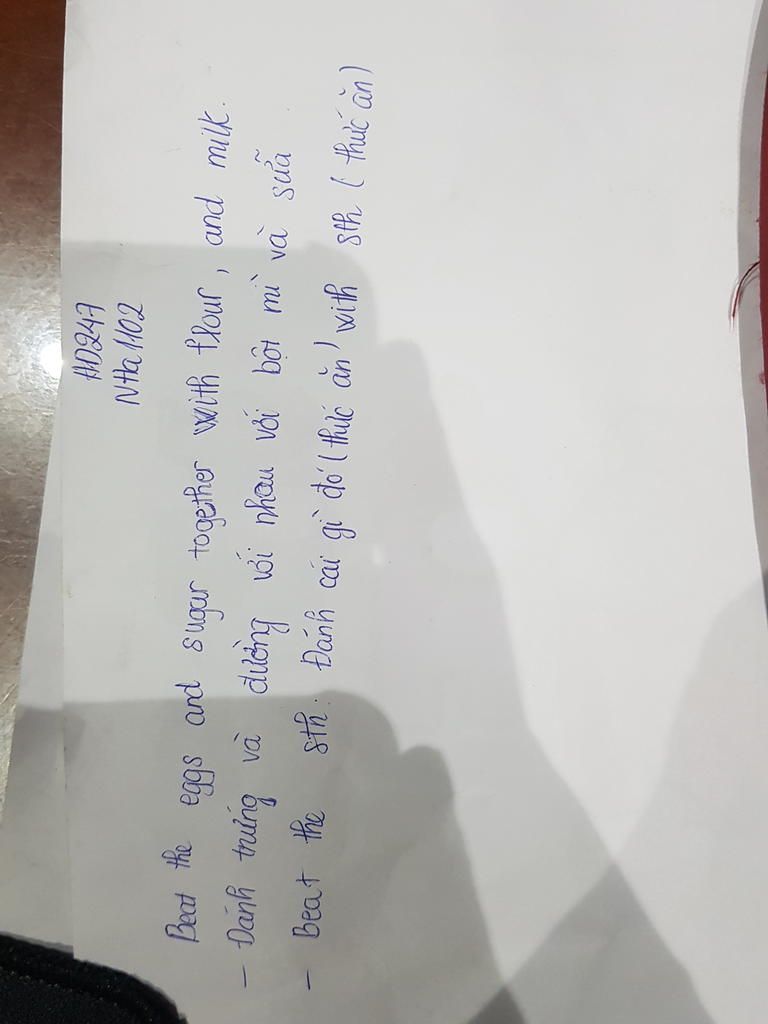 HD247
NHa1102
Beat the eggs and sugar together with flour, and milk.
- Đánh trứng và đường với nhau với bột mì và sữa.
- Beat the sth: Đánh cái gì đó (thức ăn) with sth (thức ăn)